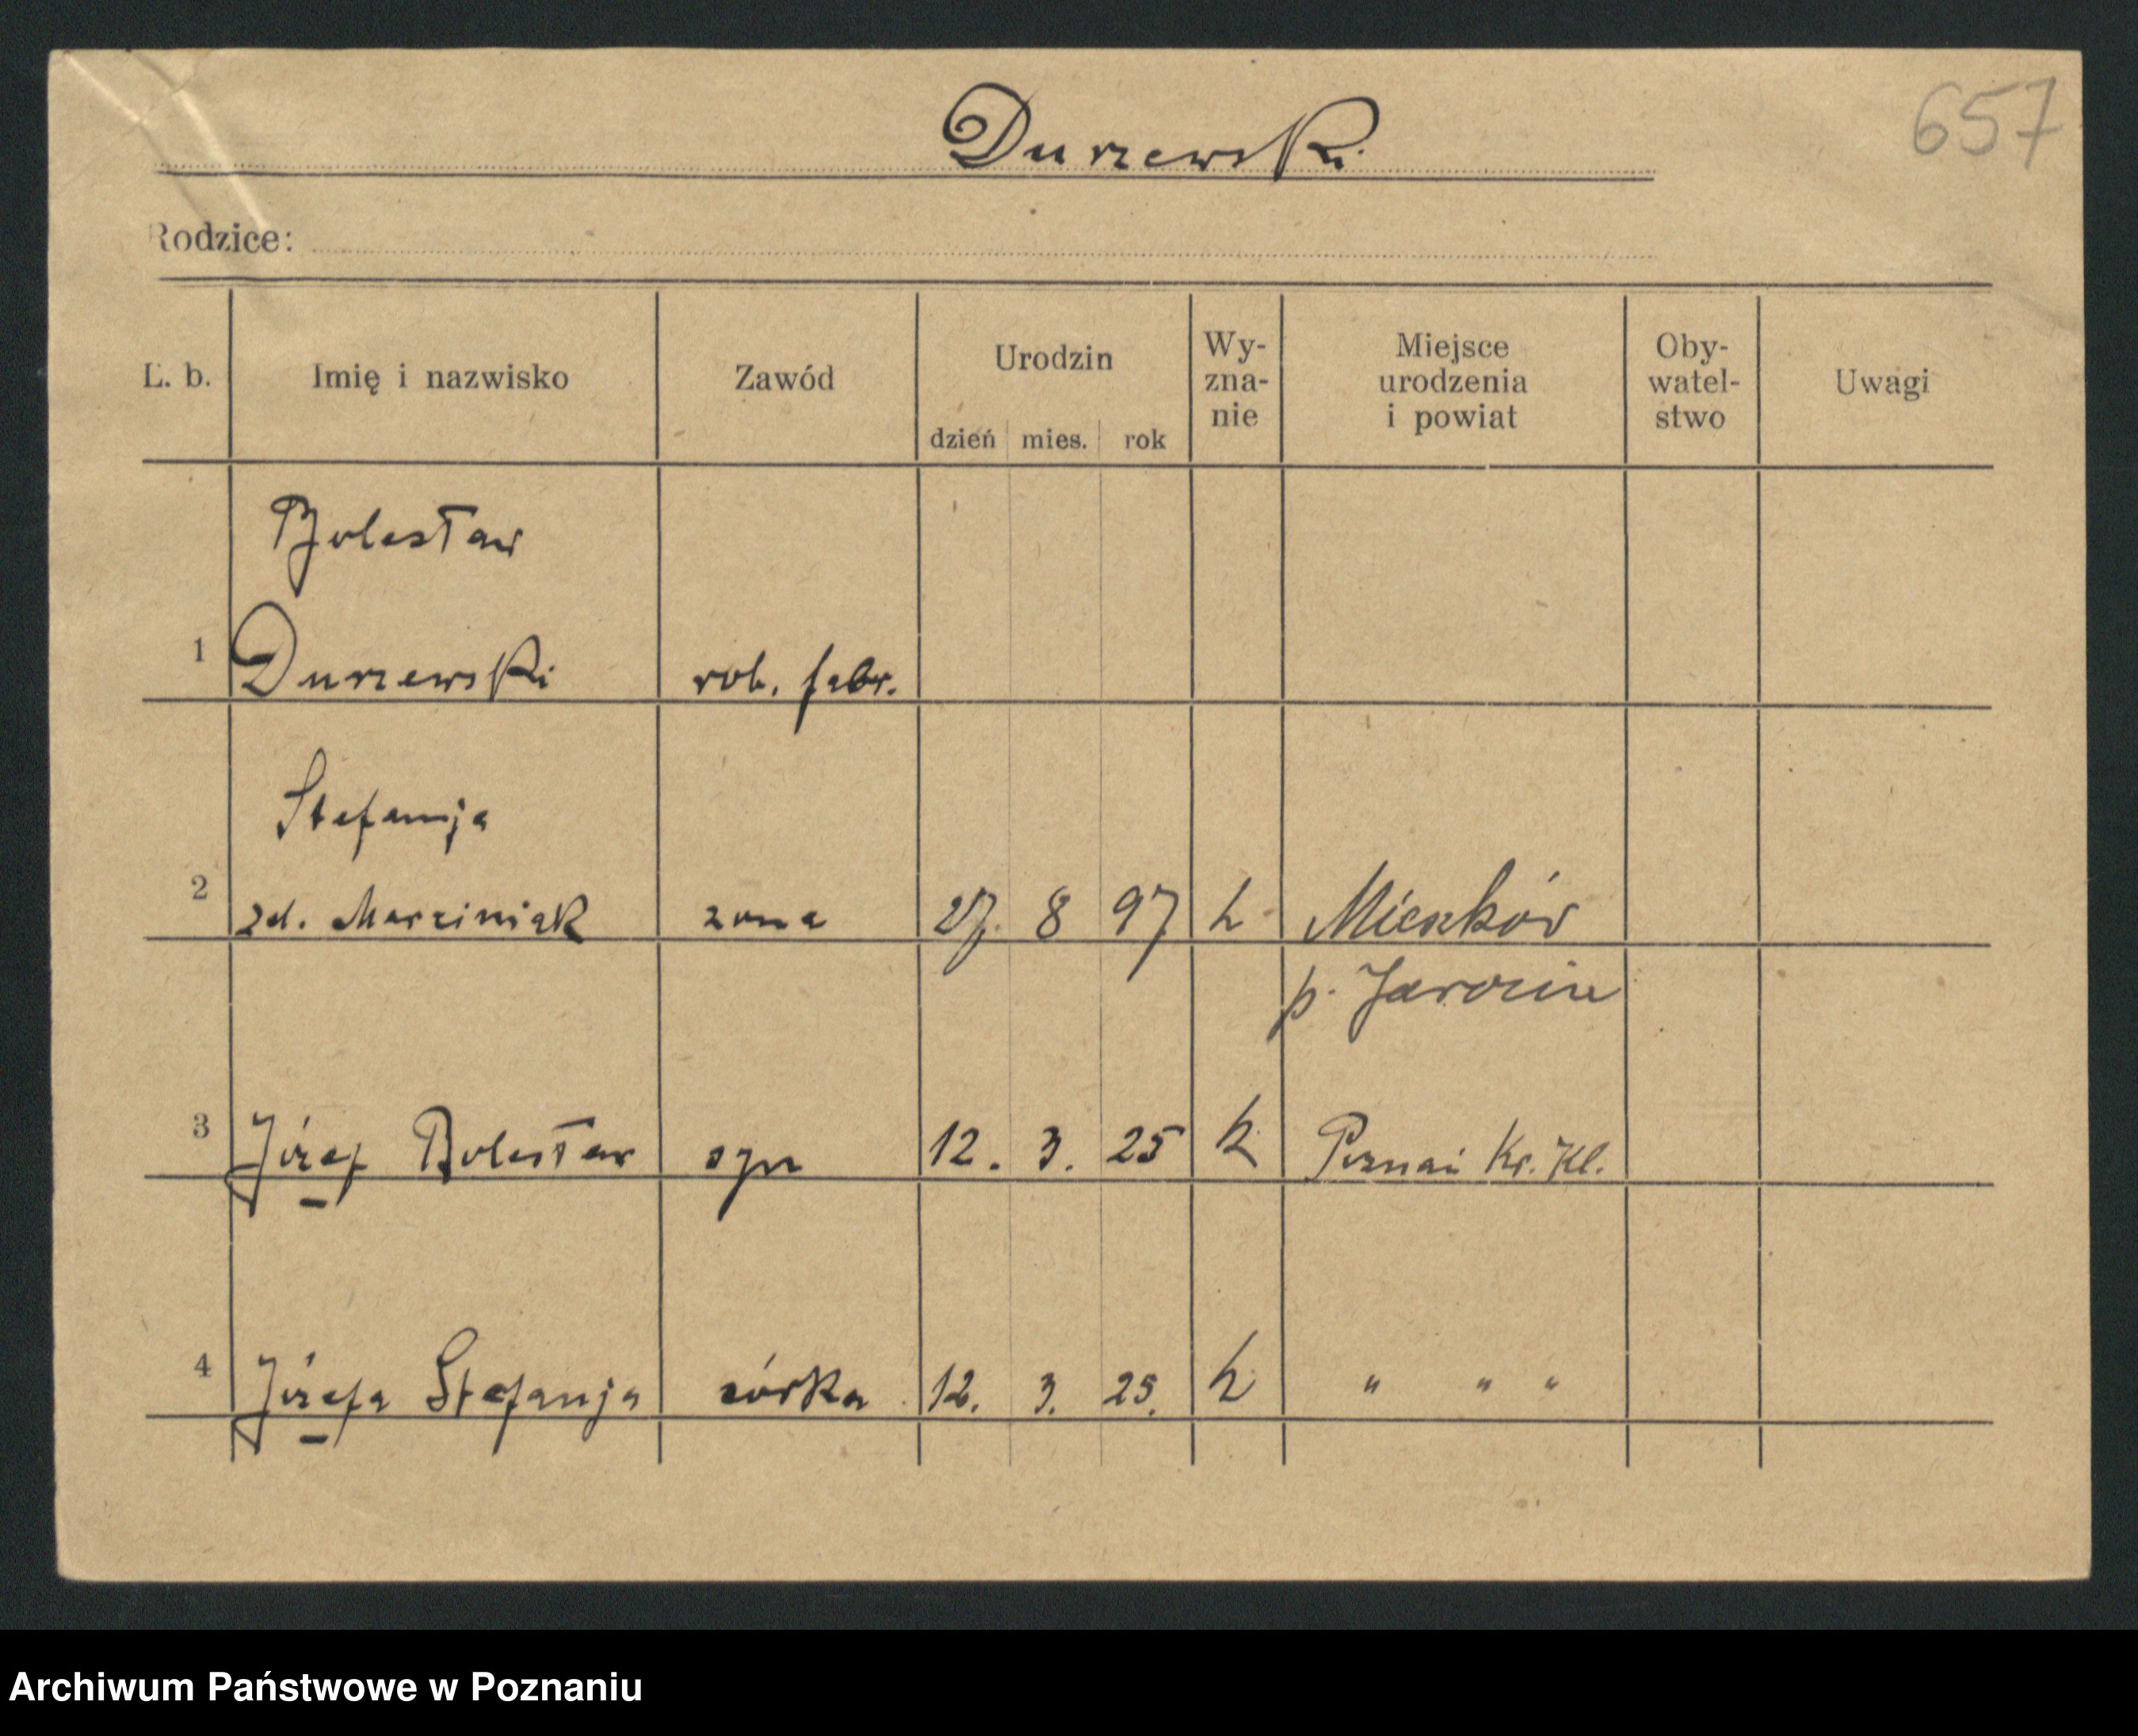 657
Durzewski
Rodzice:
L. b. Imię i nazwisko Zawód Urodzin dzień mies. rok Wy-zna-nie Miejsce urodzenia i powiat Oby-watel-stwo Uwagi
Bolesław
1 Durzewski rob. fabr.
Stefanja
2 zd. Marciniak żona 27. 8 97 k Mieszków
p. Jarocin
3 Józef Bolesław syn 12. 3. 25 k Poznań Kr. Kl.
4 Józefa Stefanja córka 12. 3. 25. k " " "
Archiwum Państwowe w Poznaniu